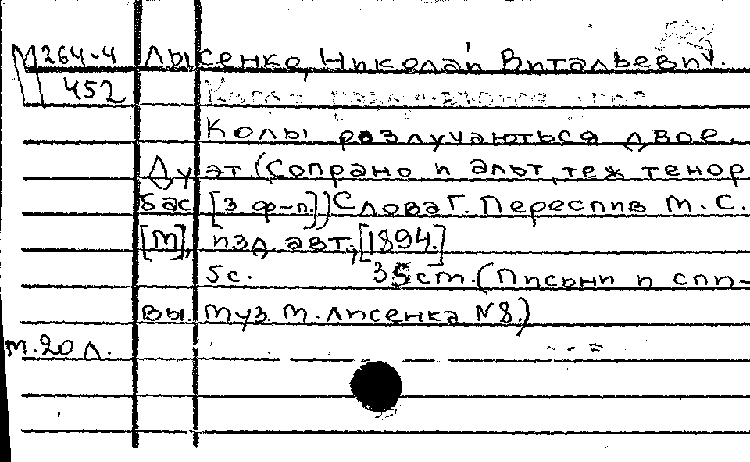 М264-4 Лысенко, Николай Витальевич.
452
Колы розлучаються двое.
Дуэт (Сопрано и альт, теж тенор
бас [з ф-п.]) Слова Г. Переспив М. С.
[М], изд. авт., [1894.]
5с. 35 ст. (Письни и спи-
вы муз. М. Лисенка №8)
т. 20 л.